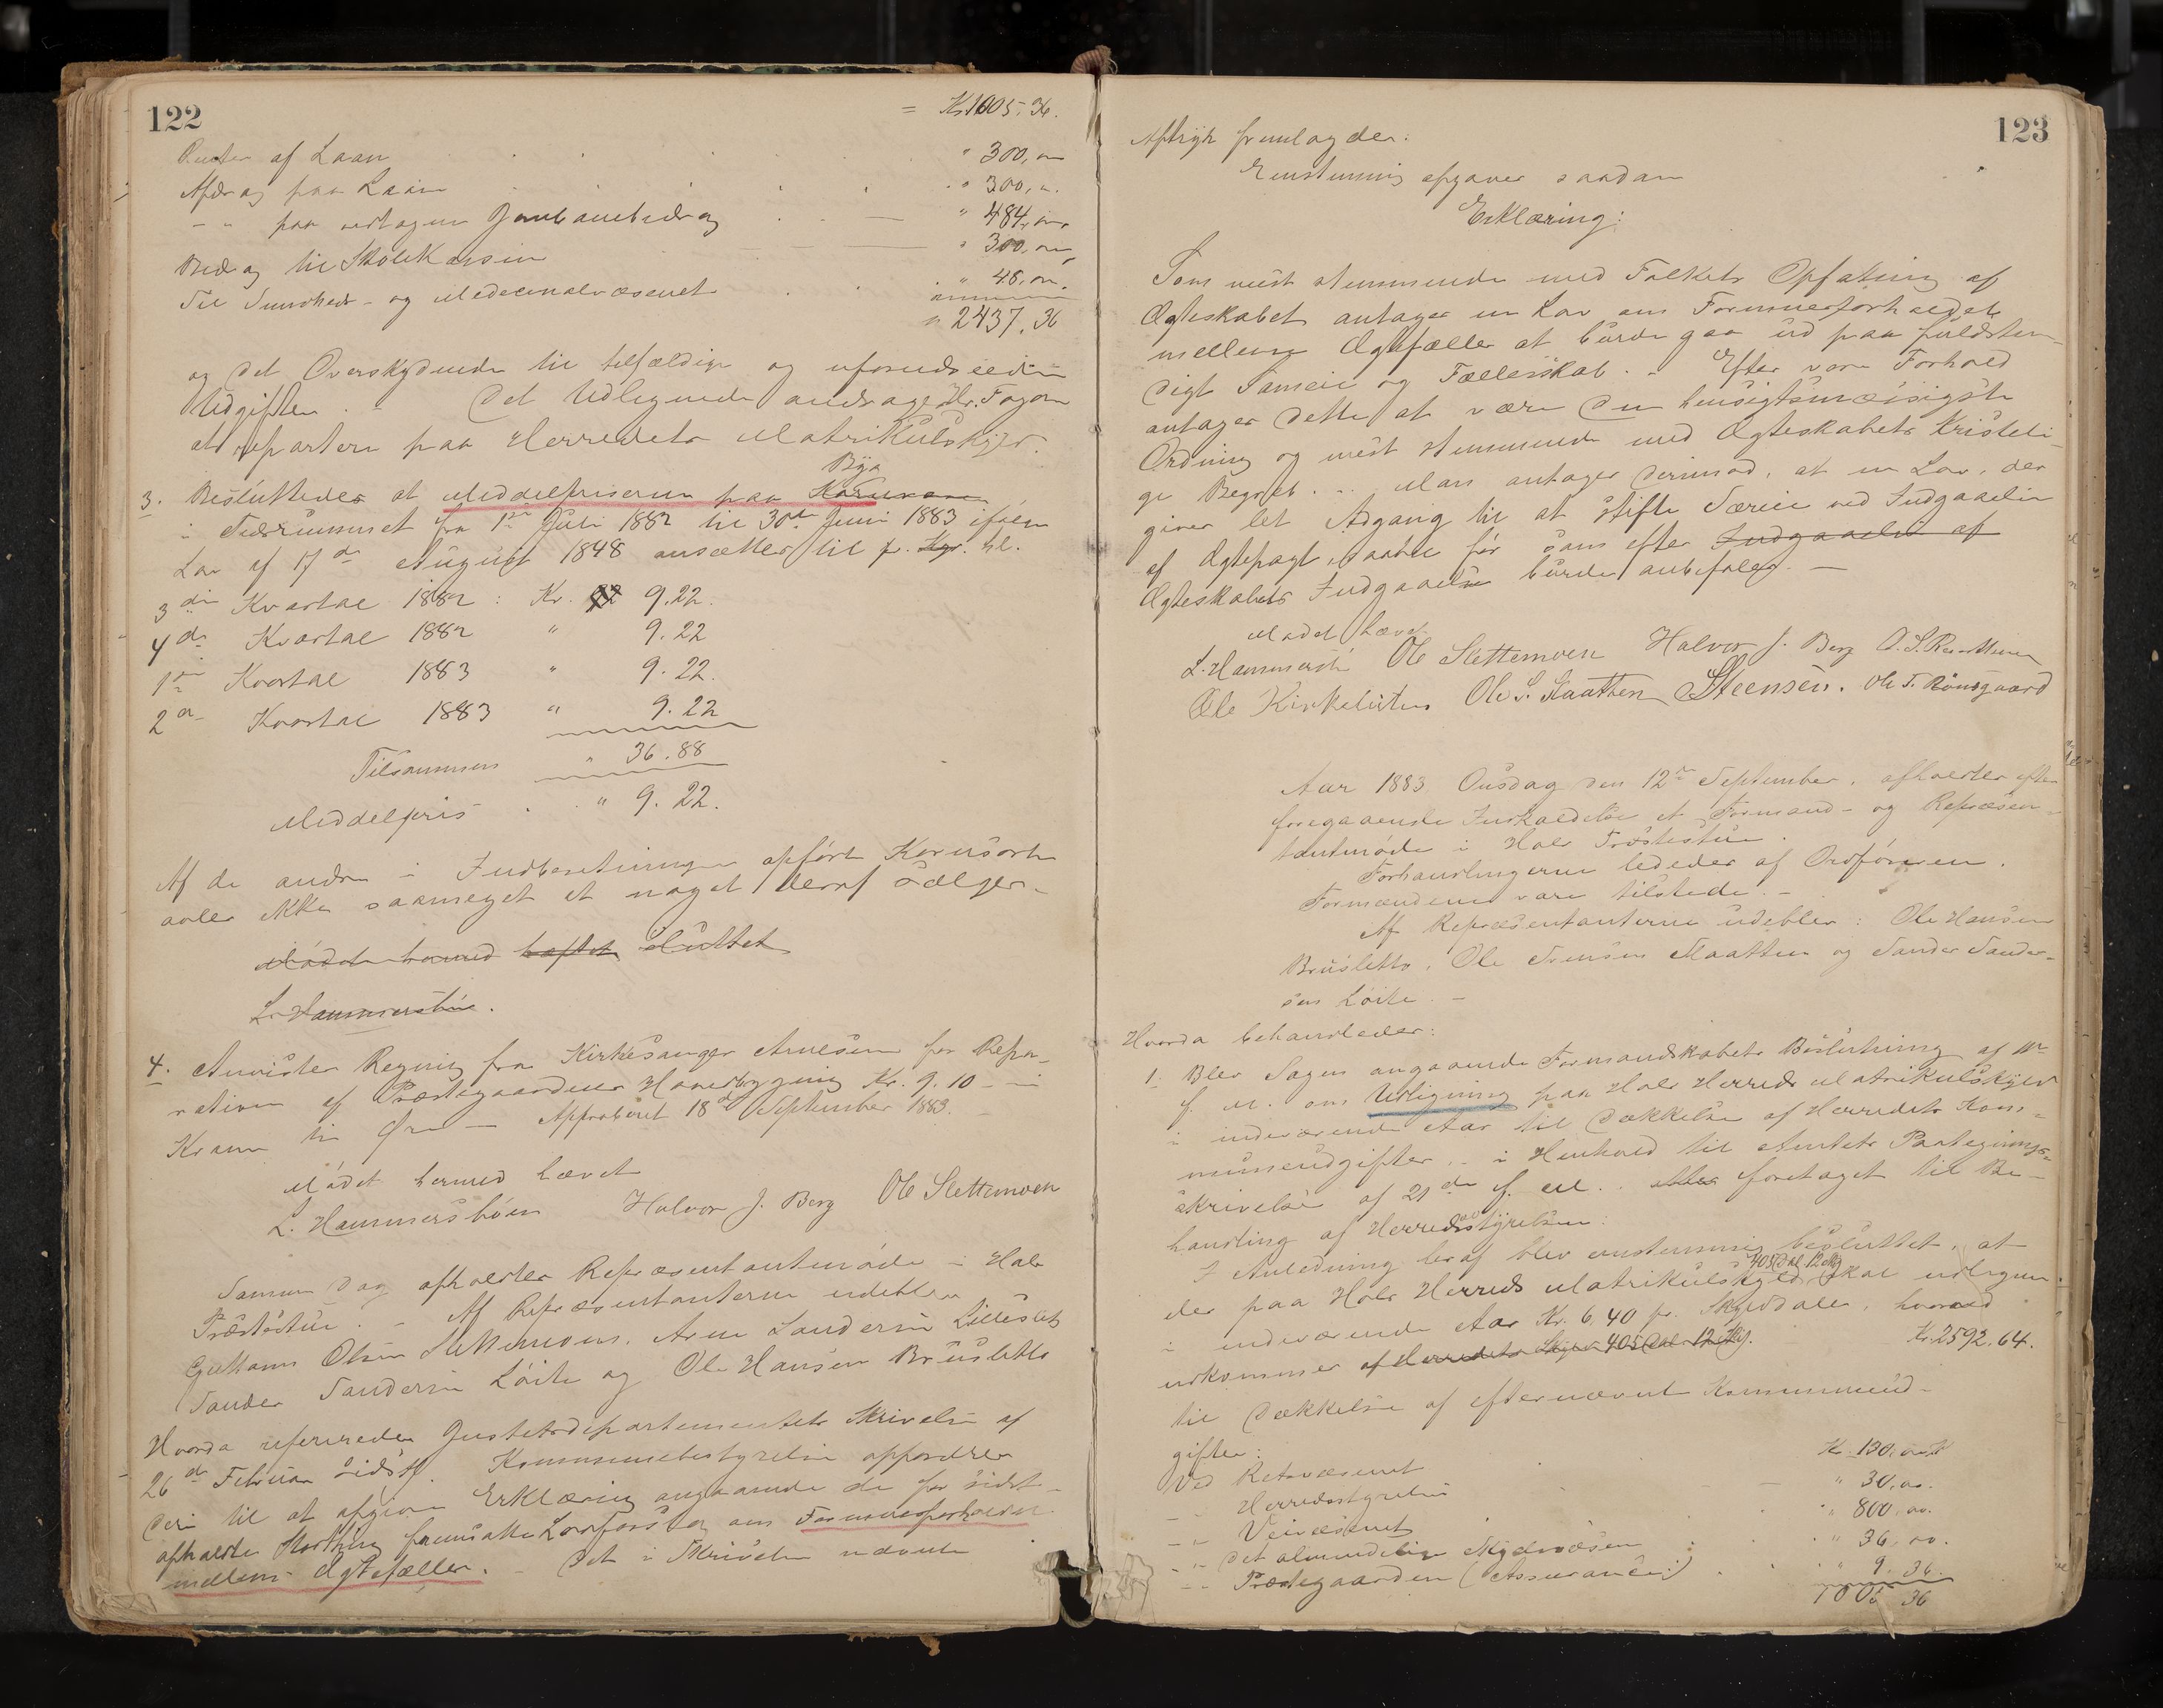 122
= Kr 1005,36.
Renter af Laan " 300,00
Afdrag paa Laan " 300,00.
- " paa vedtagen Jernbanebidrag " 484,00
Bidrag til Skolekassen " 300,00
Til Sundheds- og Medecinalvæsenet " 48,00.
" 2437,36
og det Overskydende til tilfældige og uforudseede
Udgifter. - Det Udlignende andrager Hr. Fogden
at repartere paa Herredets Matrikulskyld.
3. Besluttedes at Middelpriserne paa Kornvarer Byg
i Tidsrummet fra 1ste Juli 1882 til 30te Juni 1883 ifølge
Lov af 17de August 1848 ansættes til pr. Kgr. hl.
3die Kvartal 1882 : Kr. 9.22.
4de Kvartal 1882 " 9.22
1ste Kvartal 1883 " 9.22.
2det Kvartal 1883 " 9.22
Tilsammen " 36.88
Middelpris . . " 9.22.
Af de andre i Indberetningen opførte Kornsorter
avles ikke saameget at noget deraf sælges.
Mødet hermed hævet sluttet
L. Hammersbøen.
4. Anvistes Regning fra Kirkesanger Arnesen for Repa-
ration af Præstegaardens Hovedbygning Kr. 9.10 - ni
Kroner ti Øre - Approberet 18de September 1883.
Mødet hermed hævet
L. Hammersbøen Halvor J. Berg Ole Slettemoen
Samme Dag afholdtes Repræsentantmøde i Hols
Præstestue. - Af Repræsentanterne udeblev
Guttorm Olsen Slettemoen, Arne Sandersen Lilleslet
Sander Sandersen Löite og Ole Hansen Brusletto
Hvorda refereredes Justitsdepartementets Skrivelse af
26de Februar sidstl. Kommunebestyrelsen opfordres
deri til at afgive Erklæring angaaende de for sidst-
afholdte Storthing fremsatte Lovforslag om Formuesforholdet
mellem Ægtefæller. - Det i Skrivelsen nævnte
123
Aftryk fremlagdes.
Enstemmig afgaves saadan
Erklæring:
Som mest stemmende med Folkets Opfatning af
Ægteskabet antages en Lov om Formuesforholdet
mellem Ægtefæller at burde gaa ud paa fuldsten-
digt Sameie og Fællesskab. - Efter vore Forhold
antages dette at være den hensigtsmæssigste
Ordning og mest stemmende med Ægteskabets kristeli-
ge Begreb. - Man antager derimod, at en Lov, der
giver let Adgang til at stifte Særeie ved Indgaaelse
af Ægtepagt, saavel før som efter Indgaaelse af
Ægteskabets Indgaaelse burde anbefales. -
Mødet hævet.
L. Hammersbø Ole Slettemoen Halvor J. Berg
Ole Kirkebiten Ole S. Maatten Steensen. Ole T. Rönsgaard
Aar 1883 Onsdag den 12te September, afholdtes efter
foregaaende Indkaldelse et Formand- og Repræsen-
tantmøde i Hols Præstestue.
Forhandlingerne lededes af Ordføreren.
Formændene vare tilstede. -
Af Repræsentanterne udeblev: Ole Hansen
Brusletto, Ole Svensen Maatten og Sander Sander-
sen Löite. -
Hvorda behandledes:
1. Blev Sagen angaaende Formandskabets Beslutning af 11te
f. M. om Udligning paa Hols Herreds Matrikulskyld
i indeværende Aar til Dækkelse af Herredets Kom-
muneudgifter, - i Henhold til Amtets Paategnings-
skrivelse af 21de f. M. - foretaget til Be-
handling af Herredsstyrelsen:
I Anledning heraf blev enstemmig besluttet, at
der paa Hols Herreds Matrikulskyld 405 Dal. 12 skal udlignes
i indeværende Aar Kr. 6,40 pr. Skylddaler, hvorved
udkommer af Herredets Skyld 405 Dal. 12 Kr. 2592,64.
til Dækkelse af efternævnte Kommuneud-
gifter:
Ved Retsvæsenet Kr. 130,00
- " Herredsstyrelsen " 30,00.
- " Veivæsenet " 800,00.
- " Det almindelige Skydsvæsen " 36,00.
- " Præstegaarden (Assurance) " 9.36.
1005 36